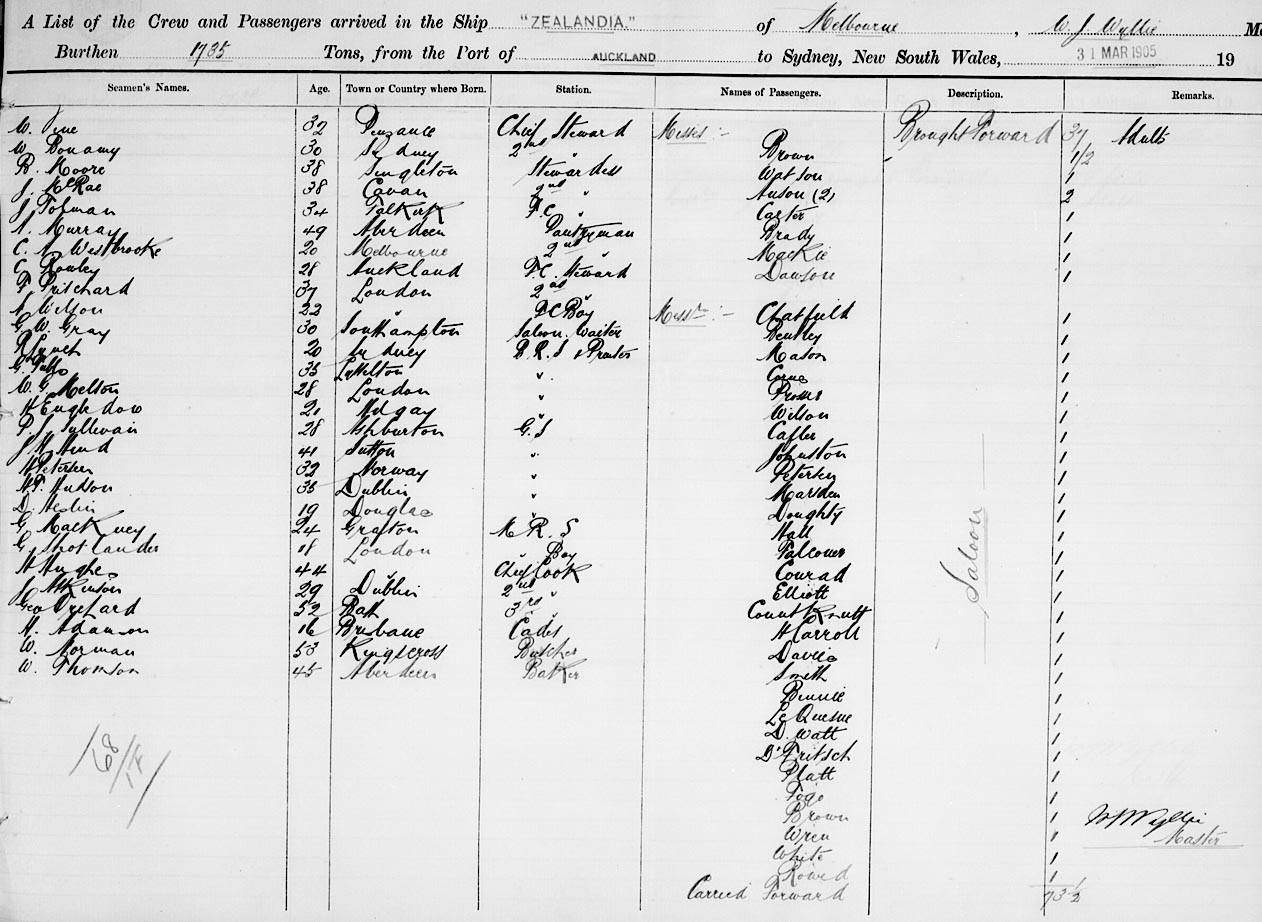 A List of the Crew and Passengers arrived in the Ship "ZEALANDIA." of Melbourne, W. J. Wyllie
Burthen 1735 Tons, from the Port of AUCKLAND to Sydney, New South Wales, 31 MAR 1905 19
Seamen's Names. Age. Town or Country where Born. Station. Names of Passengers. Description. Remarks.
W. Pine 32 Penzance Chief Steward Misses :- Brought Forward 37 Adults
W. Donamy 30 Sydney 2nd " Brown 1/2
B. Moore 38 Singleton Stewardess Watson 1
J. McRae 38 Cavan 2nd " Anson (2) 2
J. Tolman 34 Falkirk F.C. " Carter 1
A. Murray 49 Aberdeen Pantryman Brady 1
C. A. Westbrooke 20 Melbourne 2nd " Mackie 1
C. Rowley 28 Auckland F.C. Steward Dawson 1
F. Pritchard 37 London 2nd "
A. Wilson 22 " F C Boy Messrs :- Chatfield 1
G. W. Gray 30 Southampton Saloon Waiter Bentley 1
R. Lynch 20 Sydney B. R. S & Printer Mason 1
G. 35 Lyttelton " 1
W. G. Melton 28 London " 1
H Engledow 21 " Wilson 1
P. J. Sullivan 28 Ashburton G. S 1
J H Hind 41 Sutton " Johnston 1
H Petersen 32 Norway " Petersen 1
H. T. Hudson 35 Dublin " Marsden 1
D. Heslin 19 Douglas " Doughty 1
G. Mackney 24 Grafton M. R. S Hall 1
G. Shotlander 18 London Boy Falconer 1
H Hughes 44 " Chief Cook Conrad 1
J. Atkinson 29 Dublin 2nd " Elliott 1
Geo Orchard 52 Bath 3rd " Count Knutt 1
H. Adamson 16 Brisbane Cadet H Carroll 1
W. Norman 53 Kingscross Butcher Davies 1
W. Thomson 45 Aberdeen Baker Smith 1
Saloon
Bennie 1
Le Quesne 1
D. Watt 1
D'Fritsch 1
Platt 1
Togo 1
Brown 1
Wren 1
White 1
Rowed 1
Carried Forward 73 1/2
68
W J Wyllie
Master